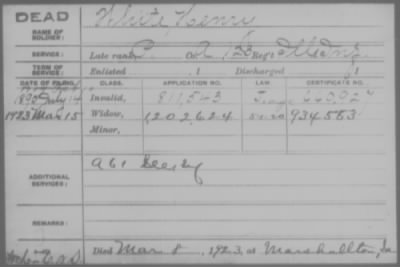 DEAD
NAME OF SOLDIER: White, Henry
SERVICE: Late rank, P. Co. A, 123 Reg't Ill Inf.
TERM OF SERVICE: Enlisted 1 Discharged 1
DATE OF FILING. CLASS. APPLICATION NO. LAW. CERTIFICATE NO.
1890 July 14 Invalid, 811,543 660,927
1923 Mar 15 Widow, 1202,624 934583
Minor,
ADDITIONAL SERVICES: A 61
REMARKS:
Died Mar 8, 1923, at Marshalltown, Ia